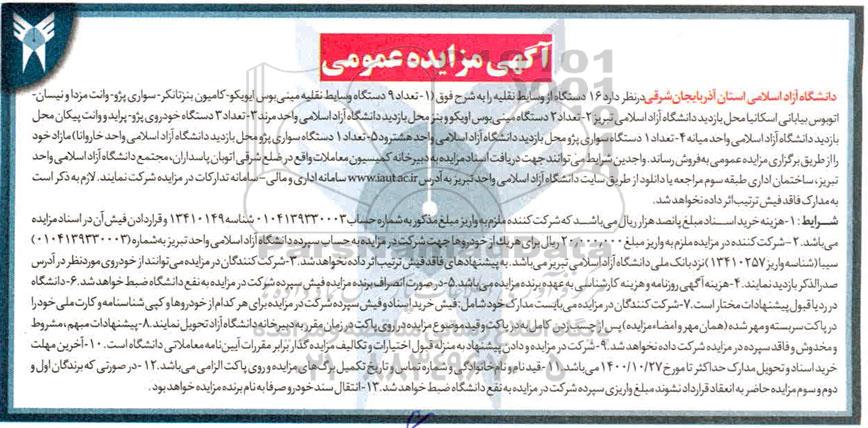 آگهی مزایده عمومی
دانشگاه آزاد اسلامی استان آذربایجان شرقی درنظر دارد ۱۶ دستگاه از وسایط نقلیه را به شرح فوق (۱- تعداد ۹ دستگاه وسایط نقلیه مینی بوس ایویکو- کامیون بنز تانکر- سواری پژو- وانت مزدا و نیسان-
اتوبوس بیابانی اسکانیا محل بازدید دانشگاه آزاد اسلامی تبریز ۲- تعداد ۲ دستگاه مینی بوس اویکو و بنز محل بازدید دانشگاه آزاد اسلامی واحد مرند ۳- تعداد ۳ دستگاه خودروی پژو- پراید و وانت پیکان محل
بازدید دانشگاه آزاد اسلامی واحد میانه ۴- تعداد ۱ دستگاه سواری پژو محل بازدید دانشگاه آزاد اسلامی واحد هشترود ۵- تعداد ۱ دستگاه سواری پژو محل بازدید دانشگاه آزاد اسلامی واحد خاروانا) مازاد خود
را از طریق برگزاری مزایده عمومی به فروش رساند. واجدین شرایط می توانند جهت دریافت اسناد مزایده به دبیرخانه کمیسیون معاملات واقع در ضلع شرقی اتوبان پاسداران، مجتمع دانشگاه آزاد اسلامی واحد
تبریز، ساختمان اداری طبقه سوم مراجعه یا دانلود از طریق سایت دانشگاه آزاد اسلامی واحد تبریز به آدرس www.iaut.ac.ir سامانه اداری و مالی – سامانه تدارکات در مزایده شرکت نمایند. لازم به ذکر است
به مدارک فاقد فیش ترتیب اثر داده نخواهد شد.
شرایط: ۱- هزینه خرید اسناد مبلغ پانصد هزار ریال می باشد که شرکت کننده ملزم به واریز مبلغ مذکور به شماره حساب ۰۱۰۴۱۳۹۳۳۰۰۰۳ شناسه ۱۳۴۱۰۱۴۹ و قرار دادن فیش آن در اسناد مزایده
می باشد. ۲- شرکت کننده در مزایده ملزم به واریز مبلغ ۲۰,۰۰۰,۰۰۰ ریال برای هر یک از خودروها جهت شرکت در مزایده به حساب سپرده دانشگاه آزاد اسلامی واحد تبریز به شماره (۰۱۰۴۱۳۹۳۳۰۰۰۳)
سیبا (شناسه واریز ۱۳۴۱۰۲۵۷) نزد بانک ملی دانشگاه آزاد اسلامی تبریز می باشد. به پیشنهادهای فاقد فیش ترتیب اثر داده نخواهد شد. ۳- شرکت کنندگان در مزایده می توانند از خودروی موردنظر در آدرس
صدرالذکر بازدید نمایند. ۴- هزینه آگهی روزنامه و هزینه کارشناسی به عهده برنده مزایده می باشد. ۵- درصورت انصراف برنده مزایده فیش سپرده شرکت در مزایده به نفع دانشگاه ضبط خواهد شد. ۶- دانشگاه
در رد یا قبول پیشنهادات مختار است. ۷- شرکت کنندگان در مزایده می بایست مدارک خود شامل: فیش خرید اسناد و فیش سپرده شرکت در مزایده برای هر کدام از خودروها و کپی شناسنامه و کارت ملی خود را
در پاکت سربسته و مهر شده (همان مهر و امضاء مزایده) پس از چسبیدن کامل لبه در پاکت و قید موضوع مزایده در روی پاکت در زمان مقرر به دبیرخانه دانشگاه آزاد تحویل نمایند. ۸- پیشنهادات مبهم، مشروط
و مخدوش و فاقد سپرده در مزایده شرکت داده نخواهد شد. ۹- شرکت در مزایده و دادن پیشنهاد به منزله قبول اختیارات و تکالیف مزایده گذار برابر مقررات آیین نامه معاملاتی دانشگاه است. ۱۰- آخرین مهلت
خرید اسناد و تحویل مدارک حداکثر تا مورخ ۱۴۰۰/۱۰/۲۷ می باشد. ۱۱- قید نام و نام خانوادگی و شماره تماس و تاریخ تکمیل برگ های مزایده و روی پاکت الزامی می باشد. ۱۲- در صورتی که برندگان اول و
دوم و سوم مزایده حاضر به انعقاد قرارداد نشوند مبلغ واریزی سپرده شرکت در مزایده به نفع دانشگاه ضبط خواهد شد. ۱۳- انتقال سند خودرو صرفا به نام برنده مزایده خواهد بود.